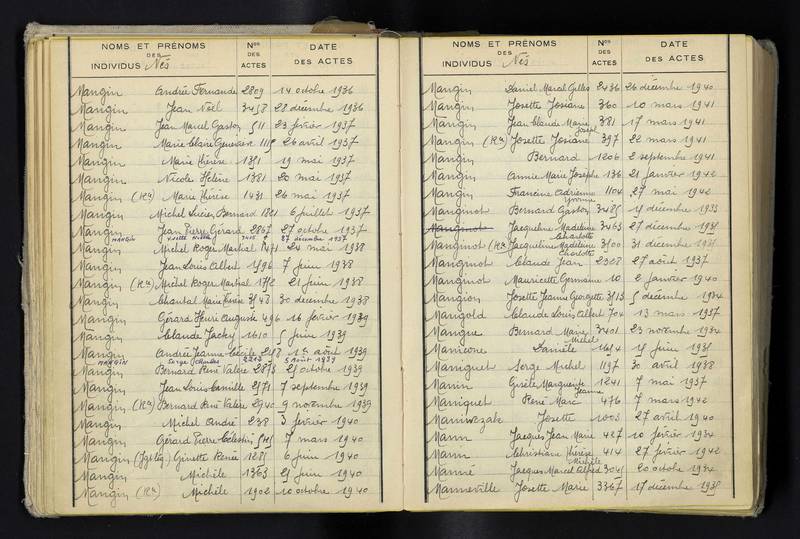 NOMS ET PRÉNOMS DES INDIVIDUS Nés | Nos DES ACTES | DATE DES ACTES
Mangin Andrée Fernande 2809 14 octobre 1936
Mangin Jean Noël 3458 28 décembre 1936
Mangin Jean Marcel Gaston 511 23 février 1937
Mangin Marie Claire Geneviève 1115 26 avril 1937
Mangin Marie Thérèse 1351 19 mai 1937
Mangin Nicole Hélène 1381 20 mai 1937
Mangin (Rre) Marie Thérèse 1431 26 mai 1937
Mangin Michel Lucien Bernard 1821 6 juillet 1937
Mangin Jean Pierre Gérard 2867 27 octobre 1937
MANGIN 27 décembre 1937
Mangin Michel Roger Martial 1471 24 mai 1938
Mangin Jean Louis Albert 1596 7 juin 1938
Mangin (Rre) Michel Roger Martial 1752 21 juin 1938
Mangin Chantal Marie Thérèse 3548 30 décembre 1938
Mangin Gérard Henri Auguste 496 16 février 1939
Mangin Claude Jacky 1610 5 juin 1939
Mangin Andrée Jeanne Cécile 1er août 1939
MANGIN Serge Charles 2203 5 Août 1939
Mangin Bernard René Valère 2873 25 octobre 1939
Mangin Jean Louis Camille 2571 7 septembre 1939
Mangin (Rre) Bernard René Valère 2940 9 novembre 1939
Mangin Michel André 238 3 février 1940
Mangin Gérard Pierre Célestin 7 mars 1940
Mangin Ginette Renée 1285 6 juin 1940
Mangin Michèle 1363 25 juin 1940
Mangin (Rre) Michèle 1902 10 octobre 1940
NOMS ET PRÉNOMS DES INDIVIDUS Nés | Nos DES ACTES | DATE DES ACTES
Mangin Daniel Marcel Gilles 2436 26 décembre 1940
Mangin Josette Josiane 360 10 mars 1941
Mangin Jean Claude Marie Joseph 381 17 mars 1941
Mangin (Rre) Josette Josiane 397 22 mars 1941
Mangin Bernard 1206 2 septembre 1941
Mangin Annie Marie Josèphe 136 21 janvier 1942
Mangin Francine Adrienne Yvonne 1104 27 mai 1942
Manginot Bernard Gaston 3485 15 décembre 1933
Manginot Jacqueline Madeleine Charlotte 3463 27 décembre 1935
Manginot (Rre) Jacqueline Madeleine Charlotte 3500 31 décembre 1935
Manginot Claude Jean 2328 27 août 1937
Manginot Mauricette Germaine 10 2 janvier 1940
Mangion Josette Jeanne Georgette 3513 5 décembre 1934
Mangold Claude Louis Albert 704 13 mars 1937
Mangue Bernard Marie Michel 3401 23 novembre 1934
Manicone Danièle 1614 15 juin 1935
Maniguet Serge Michel 1197 30 avril 1938
Manin Gisèle Marguerite Jeanne 1241 7 mai 1937
Maniquet René Marc 476 7 mars 1942
Josette 1003 27 avril 1940
Mann Jacques Jean Marie 427 10 février 1934
Mann Christiane Thérèse Michèle 414 27 février 1942
Manné Jacques Marcel Alfred 3041 20 octobre 1934
Manneville Josette Marie 3367 17 décembre 1935